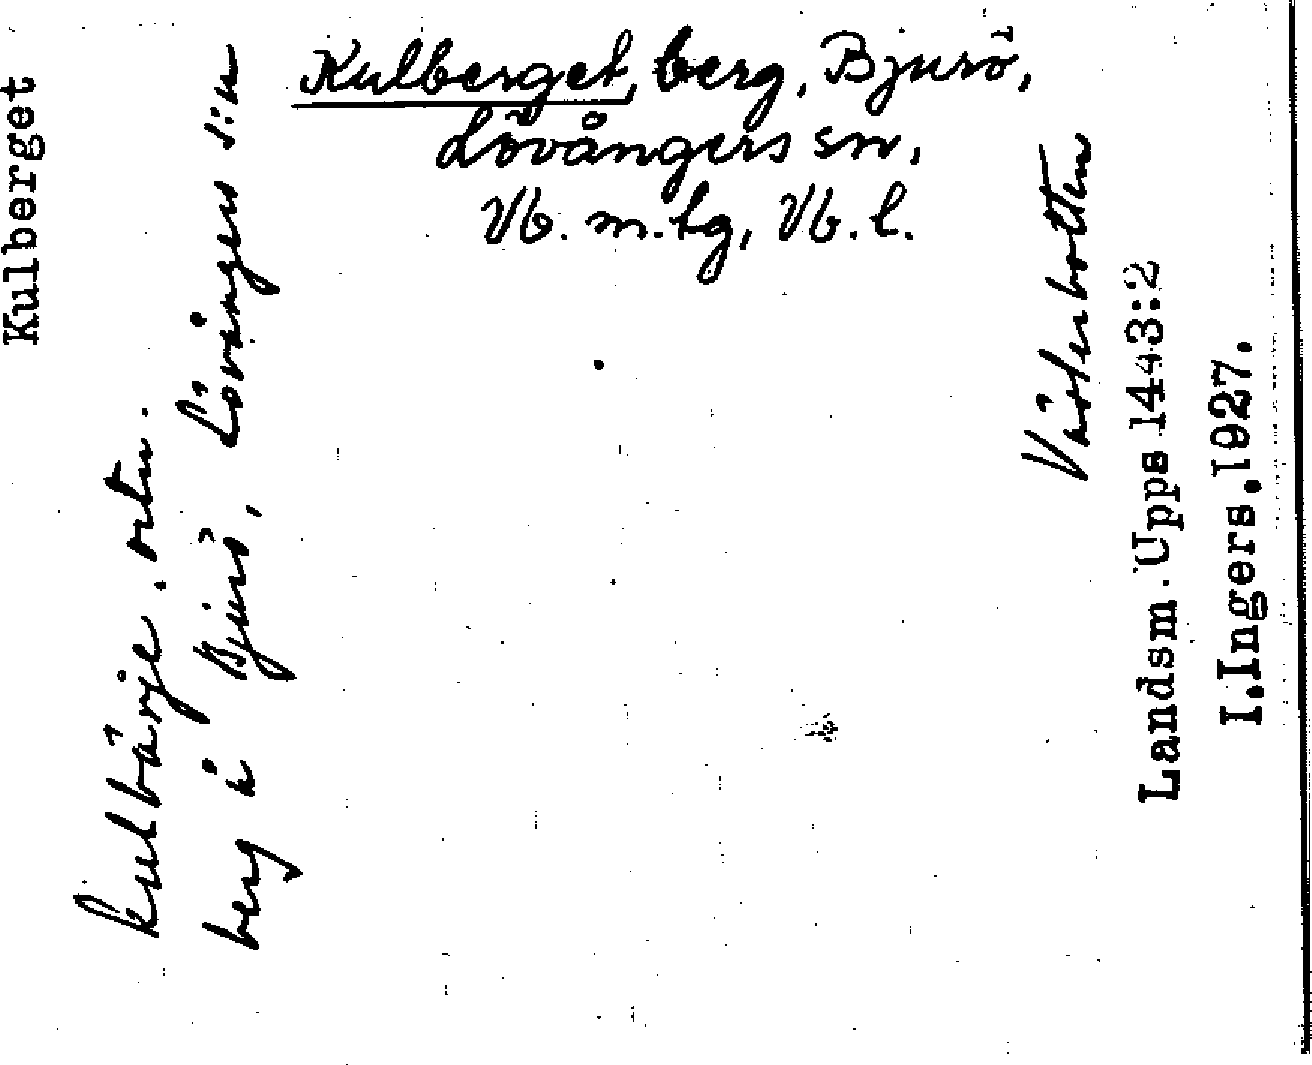 Kulberget, berg, Bjurö,
Lövångers sn,
Vb. m.tg, Vb. l.
Kulberget
kulbärje. ortn.
berg å Bjurö, Lövångers s:n
Västerbotten
Landsm. Upps 1443:2
I. Ingers. 1927.